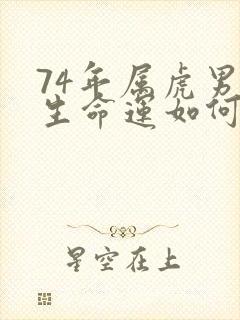 74年属虎男
生命运如何
星空在上